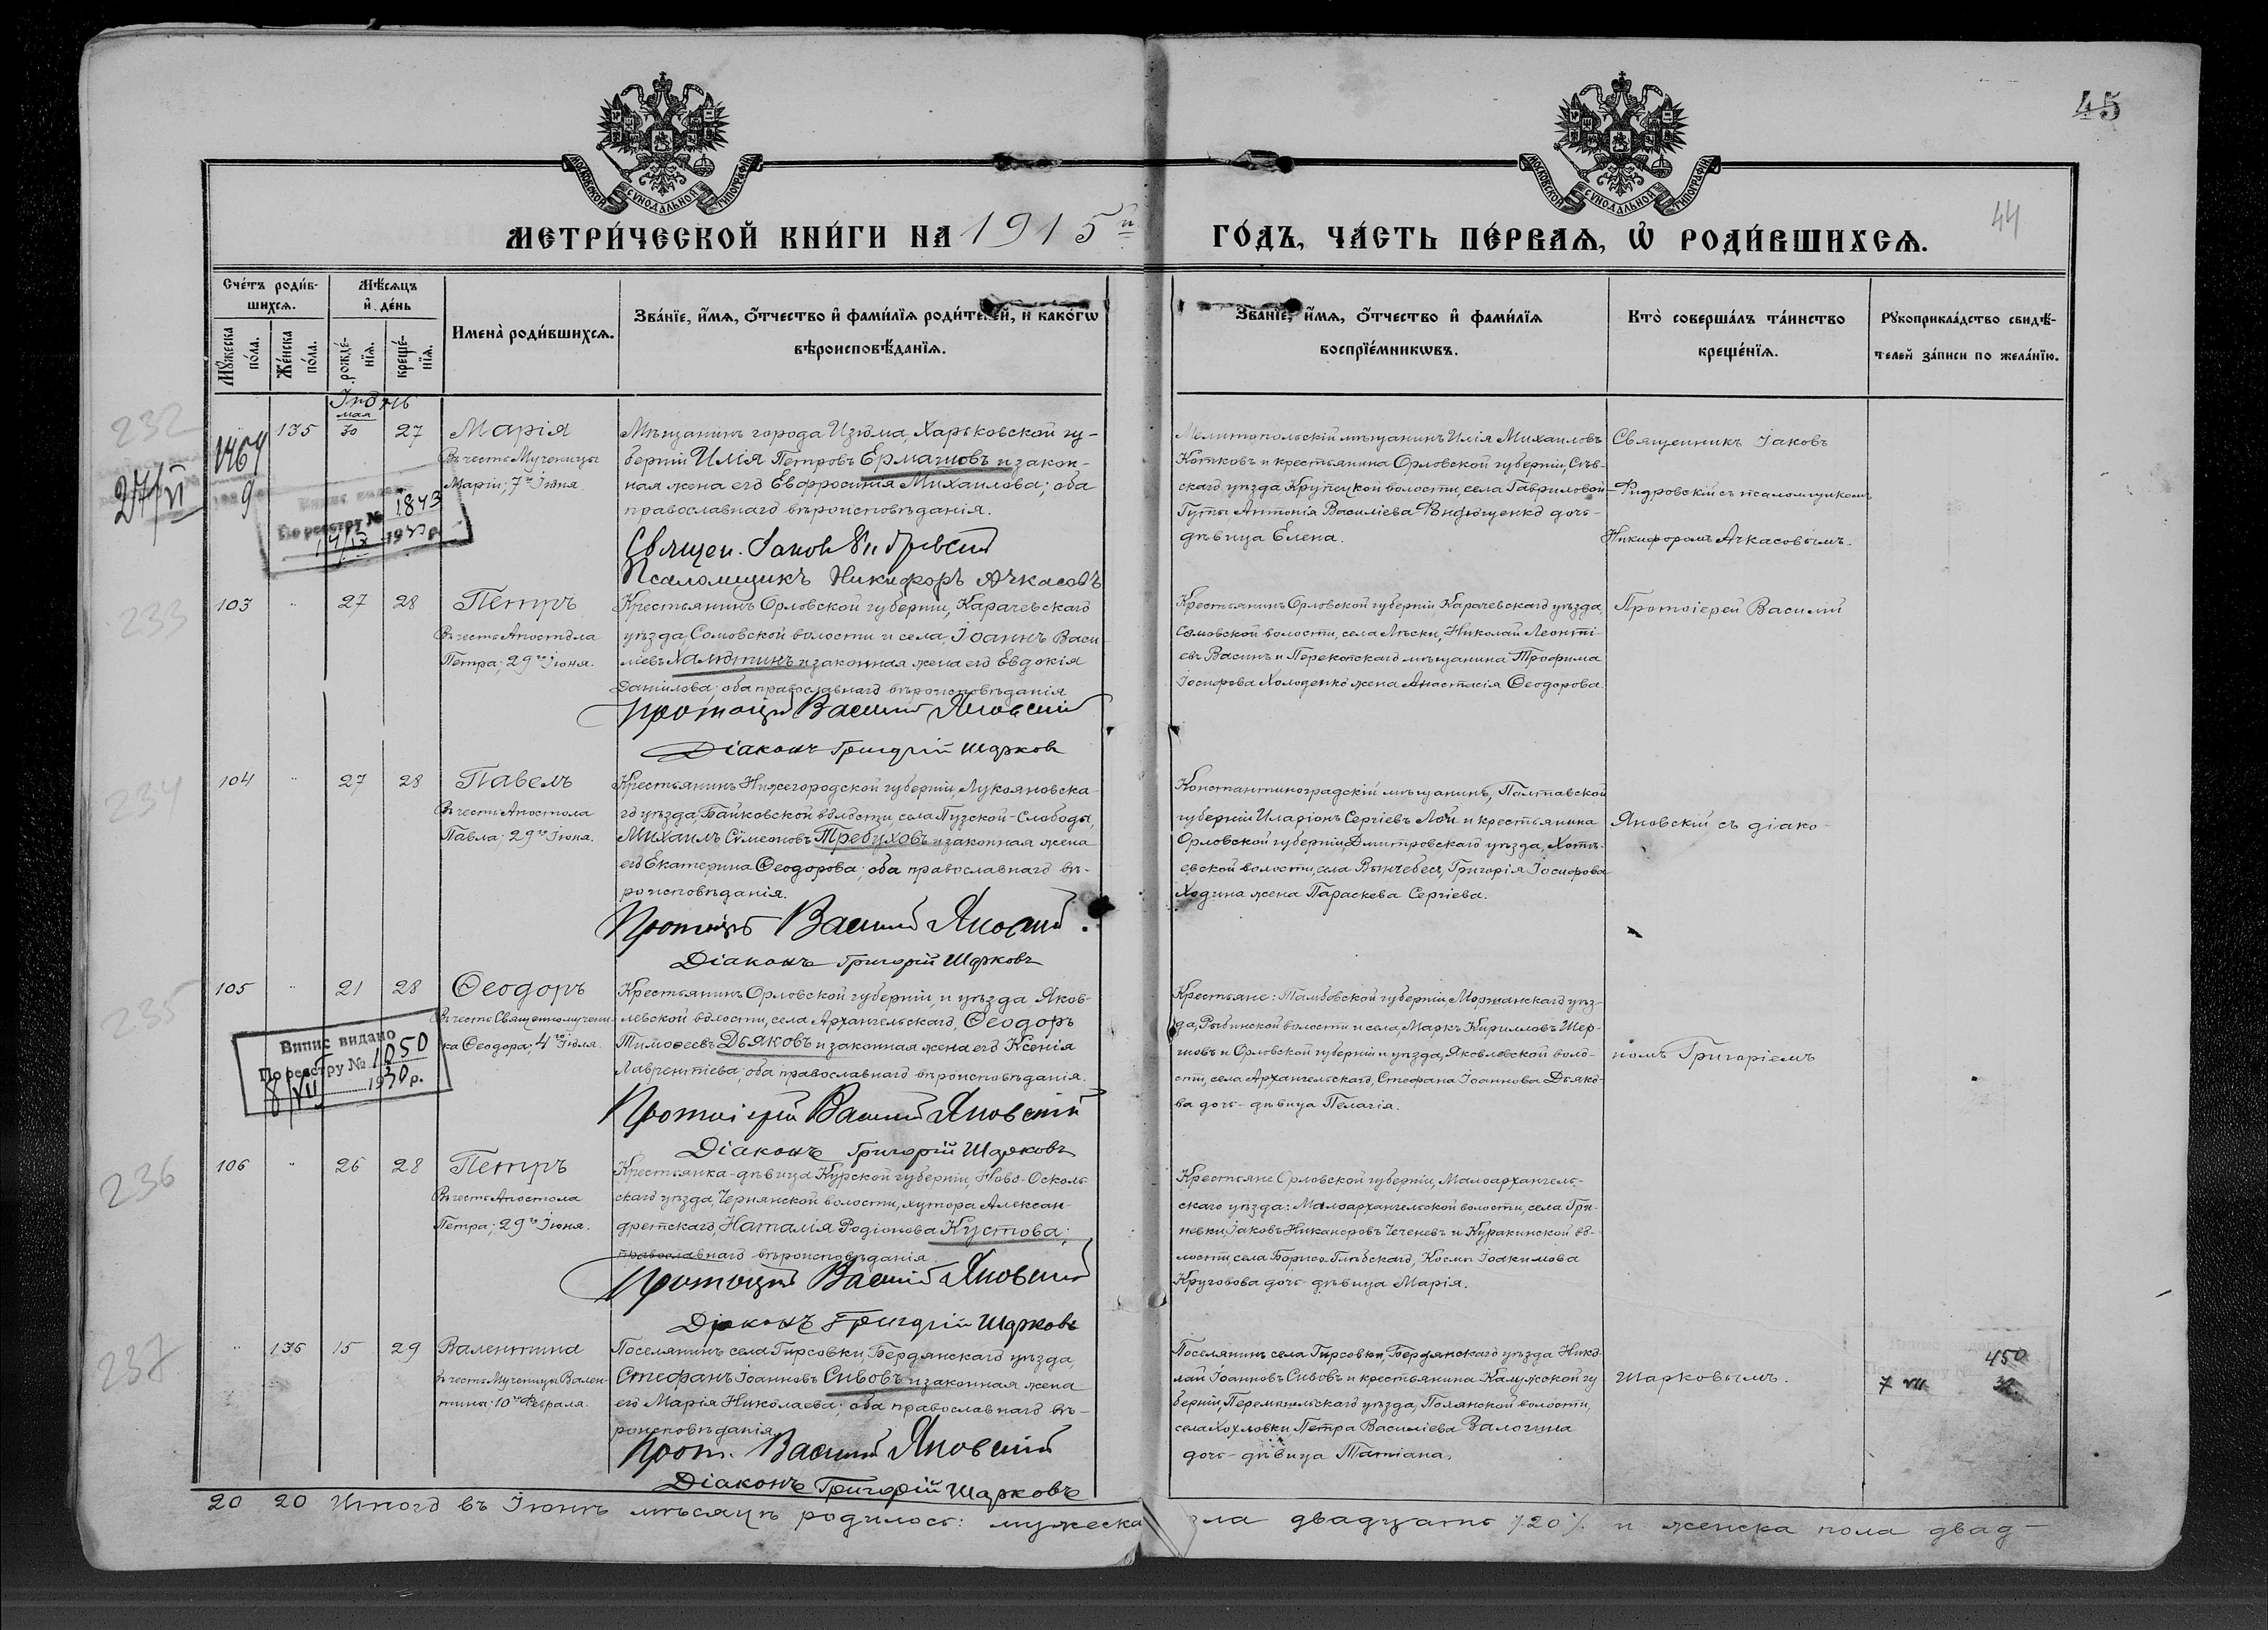 45
44
МОСКОВСКОЙ СУНОДАЛЬНОЙ ТИПОГРАФІИ
МОСКОВСКОЙ СУНОДАЛЬНОЙ ТИПОГРАФІИ
МЕТРИ́ЧЕСКОЙ КНИ́ГИ НА 1915й ГО́ДЪ, ЧА́СТЬ ПЕ́РВАѦ, Ѡ҆ РОДИ́ВШИХСѦ.
Сче́тъ роди́в-
шихсѧ.
Мѣ́сѧцъ
и҆ де́нь
Мꙋ́жеска по́ла.
Же́нска по́ла.
рожде́-нїѧ.
креще́-нїѧ.
Имена̀ роди́вшихсѧ.
Зва́нїе, и҆́мѧ, ѻ҆́тчество и҆ фами́лїѧ роди́телей, и҆ како́гѡ
вѣроисповѣ́данїѧ.
Зва́нїе, и҆́мѧ, ѻ҆́тчество и҆ фами́лїѧ
воспрїе́мникѡвъ.
Кто̀ соверша́лъ та́инство
креще́нїѧ.
Рꙋкоприкла́дство свидѣ́-
телей за́писи по жела́нїю.
232
135
мая
30
27
Марія
Въ честь Мученицы
Маріи; 7го Іюня
Мѣщанинъ города Изюма, Харьковской гу-
берніи Илія Петровъ Ермаковъ и закон-
ная жена его Евфросинія Михаилова; оба
православнаго вѣроисповѣданія.
Священ. Іаков
Псаломщикъ Никифоръ Ачкасовъ
Мелитопольскій мѣщанинъ Илія Михаиловъ
Котковъ и крестьянина Орловской губерніи, Сѣв-
скаго уѣзда Крупецкой волости, села Гавриловой
Гуты Антонія Василіева дочь-
дѣвица Елена.
Священникъ Іаковъ
съ псаломщикомъ
Никифоромъ Ачкасовымъ.
1464
9
27/VI
Випис видано
По реєстру № 1843
14/IX 193 р.
233
103
"
27
28
Петръ
Въ честь Апостола
Петра; 29го Іюня.
Крестьянинъ Орловской губерніи, Карачевскаго
уѣзда, Сомовской волости и села, Іоаннъ Васи-
ліевъ Халютинъ и законная жена его Евдокія
Даніилова; оба православнаго вѣроисповѣданія
Протоіерей Василий Яновскій
Діаконъ Григорій Шарков
Крестьянинъ Орловской губерніи Карачевскаго уѣзда,
Сомовской волости, села Лѣски, Николай Леонті-
евъ Васинъ и Перекопскаго мѣщанина Трофима
Іосифова Холоденко жена Анастасія Ѳеодорова.
Протоіерей Василій
234
104
"
27
28
Павелъ
Въ честь Апостола
Павла; 29го Іюня.
Крестьянинъ Нижегородской губерніи, Лукояновска-
го уѣзда, Байковской волости, села Пузской-Слободы,
Михаилъ Сѵмеоновъ Требуховъ и законная жена
его Екатерина Ѳеодорова; оба православнаго вѣ-
роисповѣданія.
Протоіерей Василий Яновскій.
Діаконъ Григорій Шарковъ
Константиноградскій мѣщанинъ, Полтавской
губерніи Иларіонъ Сергіевъ Лой и крестьянина
Орловской губерніи, Дмитровскаго уѣзда, Хотѣ-
евской волости, села Григорія Іосифова
Ходина жена Параскева Сергіева.
Яновскій съ діако-
235
105
"
21
28
Ѳеодоръ
Въ честь Священномучени-
ка Ѳеодора; 4го Іюля.
Крестьянинъ Орловской губерніи, и уѣзда Яков-
левской волости, села Архангельскаго, Ѳеодоръ
Тимоѳеевъ Дьяковъ и законная жена его Ксенія
Лаврентіева; оба православнаго вѣроисповѣданія.
Протоіерей Василий Яновскій
Діаконъ Григорій Шарковъ
Крестьяне: Тамбовской губерніи, Моршанскаго уѣз-
да, Рыбинской волости и села, Маркъ Кирилловъ Шер-
шовъ и Орловской губерніи и уѣзда, Яковлевской воло-
сти, села Архангельскаго, Стефана Іоаннова Дьяко-
ва дочь-дѣвица Пелагія.
номъ Григоріемъ
Випис видано
По реєстру № 1050
8/VII 1930 р.
236
106
"
26
28
Петръ
Въ честь Апостола
Петра; 29го Іюня.
Крестьянка-дѣвица Курской губерніи, Ново-Осколь-
скаго уѣзда, Чернянской волости, хутора Алексан-
дретскаго, Наталія Родіонова Кустова;
православнаго вѣроисповѣданія.
Протоіерей Василій Яновскій
Діаконъ Григорій Шарковъ
Крестьяне Орловской губерніи, Малоархангель-
скаго уѣзда: Малоархангельской волости, села Гри-
невки, Іаковъ Никаноровъ Чеченевъ и Куракинской во-
лости, села Борисо-Глѣбскаго, Косьмы Іоакимова
Круговова дочь-дѣвица Марія.
237
"
136
15
29
Валентина
въ честь Мученицы Вален-
тины; 10го Февраля.
Поселянинъ села Гирсовки, Бердянскаго уѣзда,
Стефанъ Іоанновъ Сивовъ и законная жена
его Марія Николаева; оба православнаго вѣ-
роисповѣданія.
Прот. Василий Яновскій
Діаконъ Григорій Шарковъ
Поселянинъ села Гирсовки, Бердянскаго уѣзда Нико-
лай Іоанновъ Сивовъ и крестьянина Калужской гу-
берніи, Перемышльскаго уѣзда, Полянской волости,
села Хохловки, Петра Василіева Валогина
дочь-дѣвица Татіана.
Шарковымъ.
450
7 VII
20 20 Итого въ Іюнѣ мѣсяцѣ родилось: мужеска пола двадцать /20/. и женска пола двад-